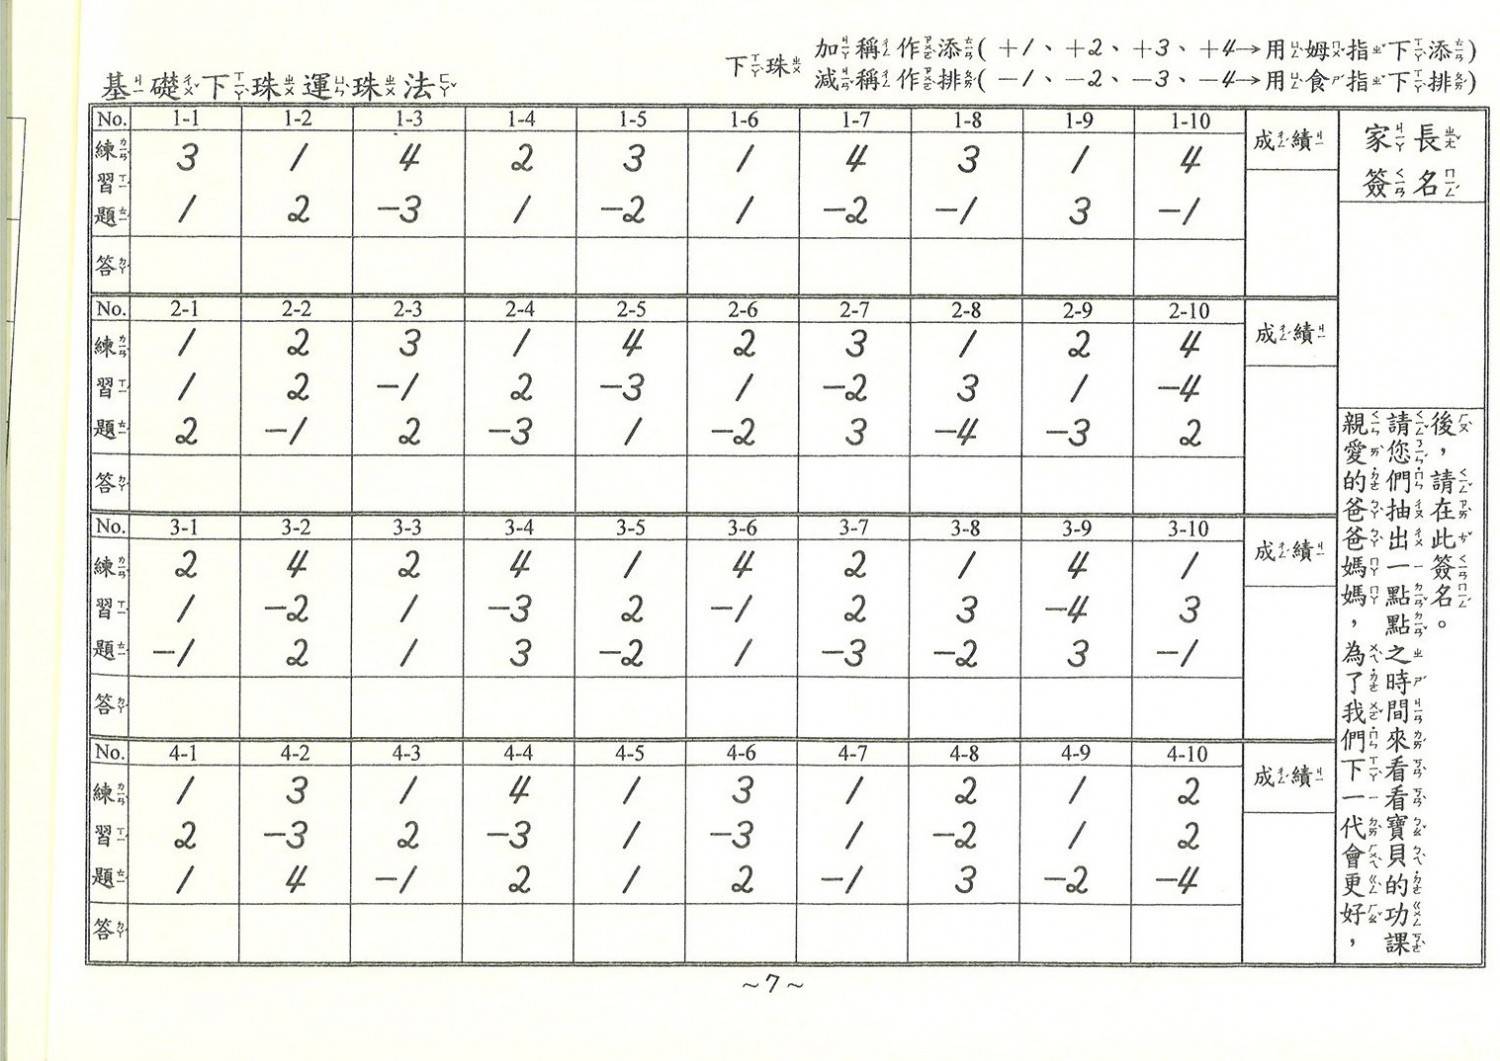 基礎下珠運珠法
下珠 加稱作添(+1、+2、+3、+4→用姆指下添)
減稱作排(-1、-2、-3、-4→用食指下排)
No. 1-1 1-2 1-3 1-4 1-5 1-6 1-7 1-8 1-9 1-10 成績 家長簽名
練習題
3 1 4 2 3 1 4 3 1 4
1 2 -3 1 -2 1 -2 -1 3 -1
答
No. 2-1 2-2 2-3 2-4 2-5 2-6 2-7 2-8 2-9 2-10 成績
練習題
1 2 3 1 4 2 3 1 2 4
1 2 -1 2 -3 1 -2 3 1 -4
2 -1 2 -3 1 -2 3 -4 -3 2
答
No. 3-1 3-2 3-3 3-4 3-5 3-6 3-7 3-8 3-9 3-10 成績
練習題
2 4 2 4 1 4 2 1 4 1
1 -2 1 -3 2 -1 2 3 -4 3
-1 2 1 3 -2 1 -3 -2 3 -1
答
No. 4-1 4-2 4-3 4-4 4-5 4-6 4-7 4-8 4-9 4-10 成績
練習題
1 3 1 4 1 3 1 2 1 2
2 -3 2 -3 1 -3 1 -2 1 2
1 4 -1 2 1 2 -1 3 -2 -4
答
親愛的爸爸媽媽，為了我們下一代會更好，
請您們抽出一點點之時間來看看寶貝的功課
後，請在此簽名。
~7~